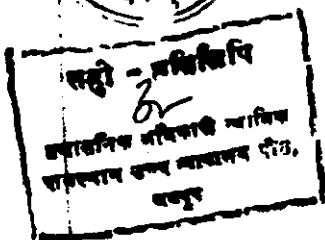 सही - प्रतिलिपि
प्रशासनिक अधिकारी न्यायिक
राजस्थान उच्च न्यायालय पीठ,
जयपुर